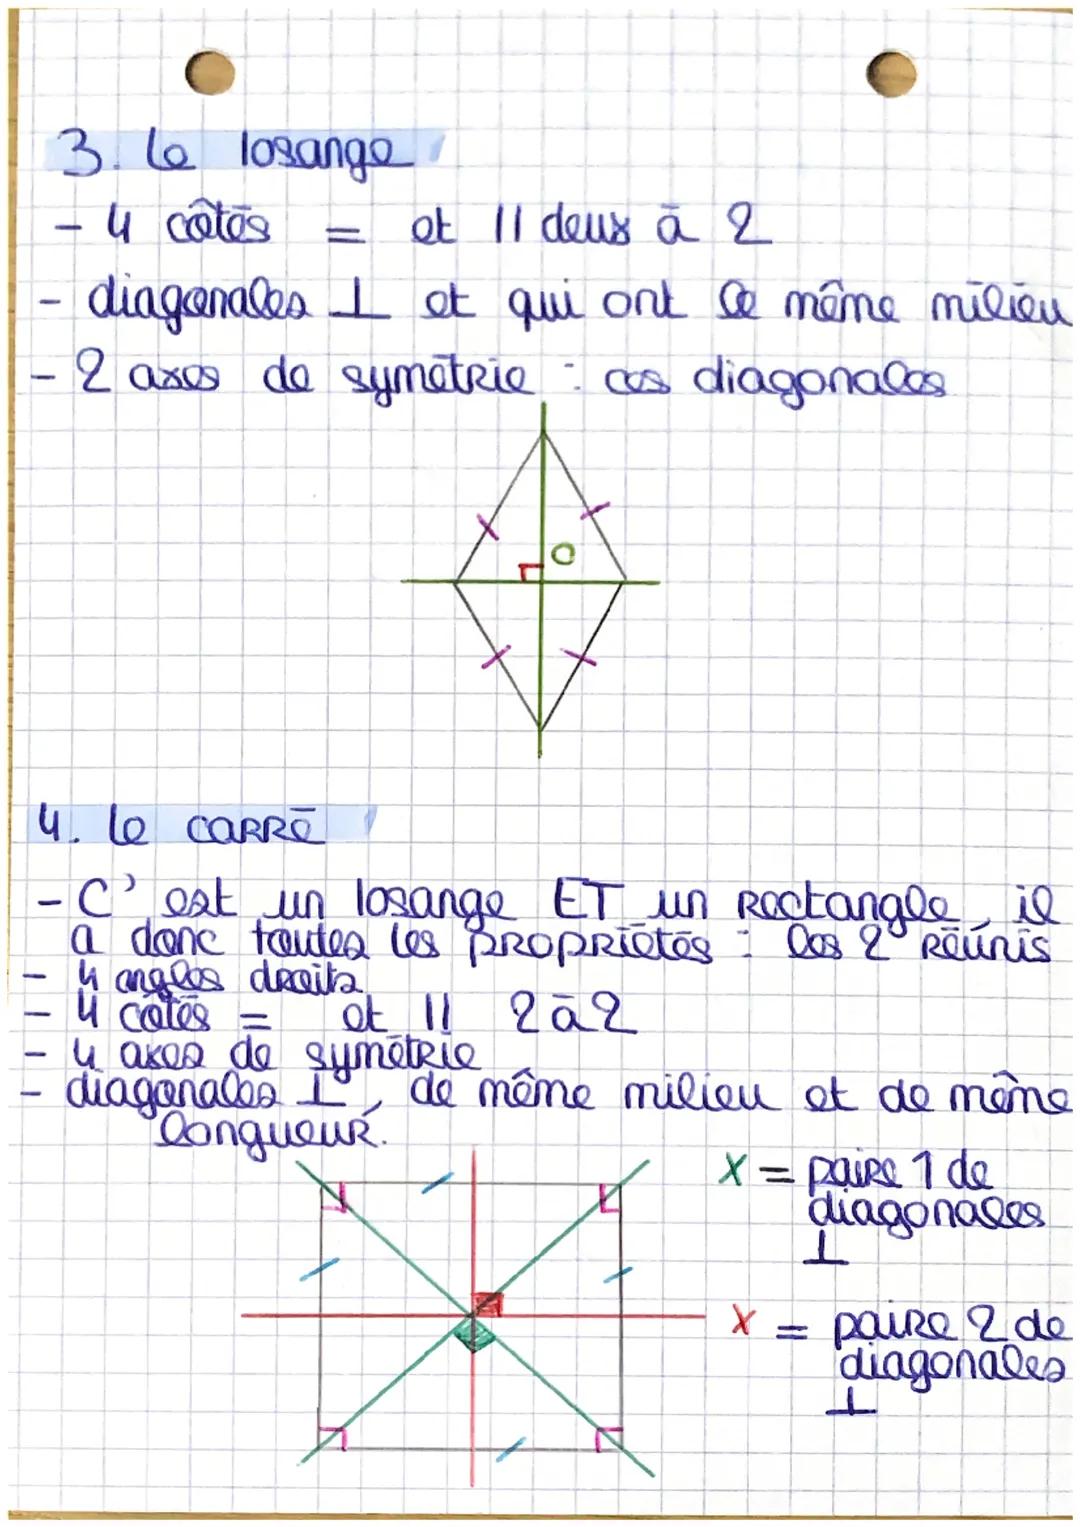 3. Le losange
- 4 côtés = et // deux à 2
- diagonales ⊥ et qui ont le même milieu
- 2 axes de symétrie : ces diagonales
O
4. Le CARRÉ
- C'est un losange ET un Rectangle, il
a donc toutes les PROPRIÉTÉS : les 2 Réunis
- 4 angles droits
- 4 côtés = et // 2 à 2
- 4 axes de symétrie
- diagonales ⊥, de même milieu et de même
longueur.
X = paire 1 de
diagonales
⊥
X = paire 2 de
diagonales
⊥